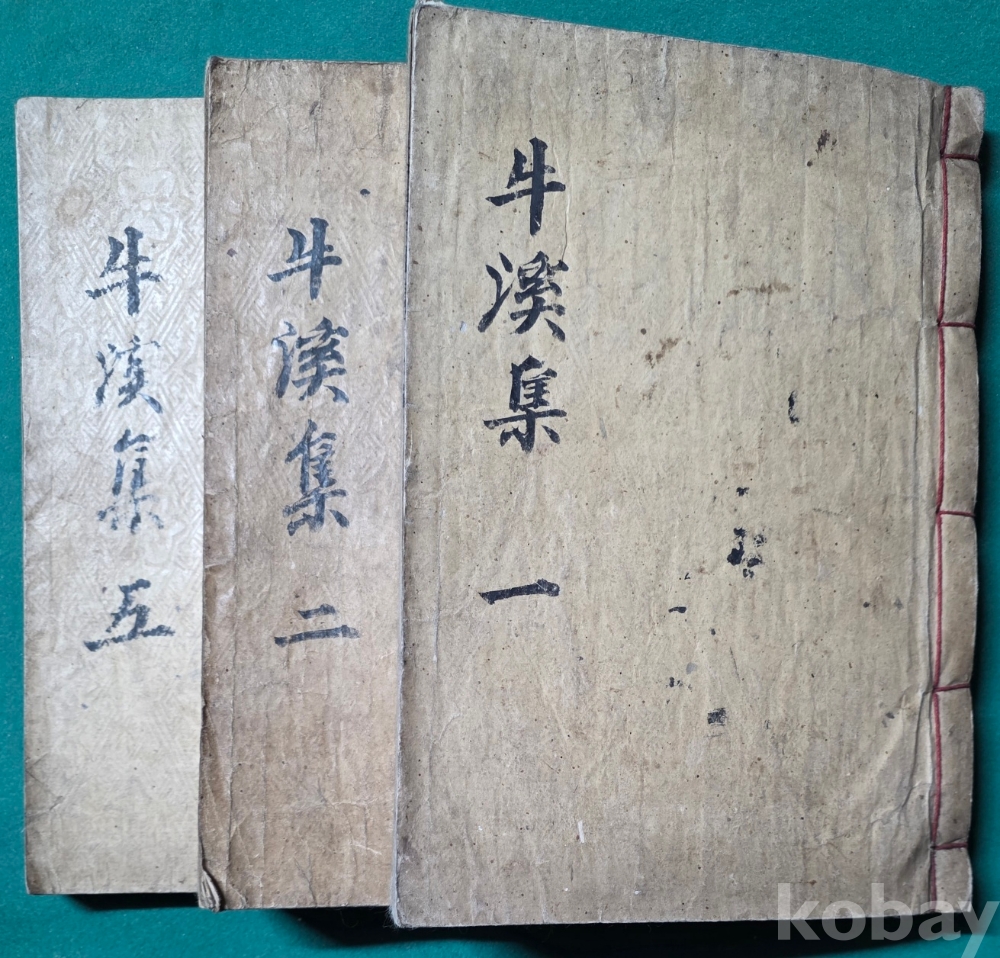 牛溪集 一
牛溪集 二
牛溪集 五
kobay